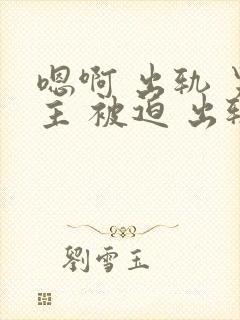 嗯啊 出轨
主 被迫 出轨
劉雪玉